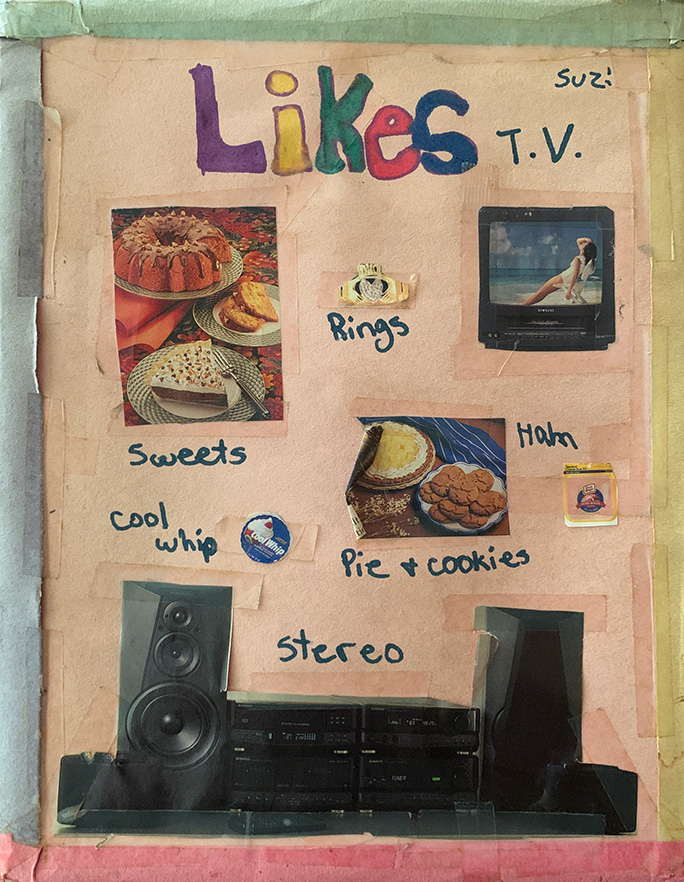 Likes
Suzi
T.V.
Rings
Sweets
Ham
Cool
whip
Cool Whip
Pie + cookies
Stereo